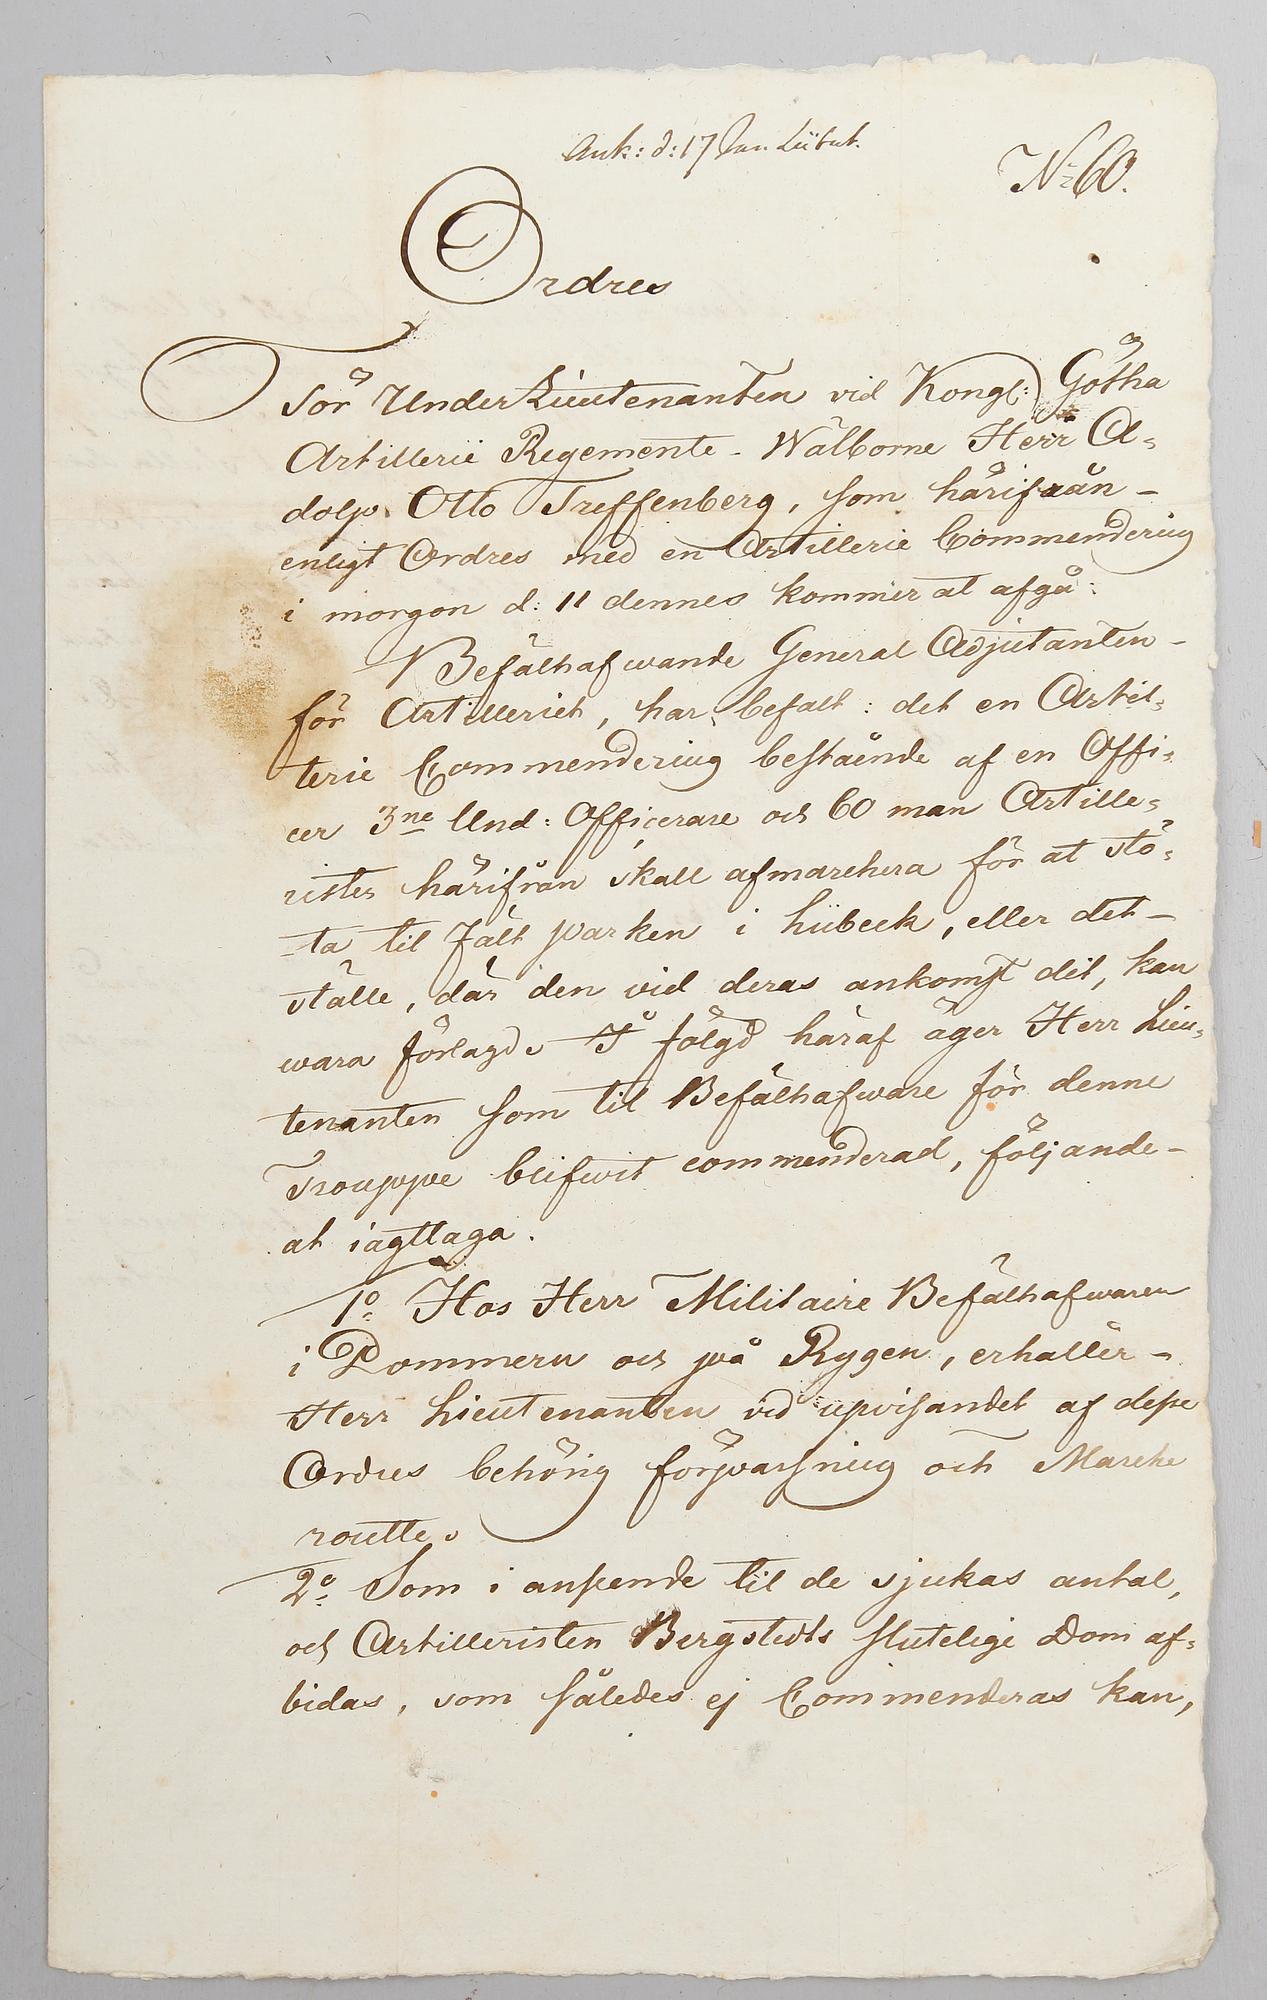 Ank: d: 17 Jan Lübek.
No 60.
Ordres
För Under Lieutenanten vid Kongl: Götha
Artillerie Regemente - Wälborne Herr A=
dolp. Otto Treffenberg, som härifrån -
enligt Ordres med en Artillerie Commendering
i morgon d: 11 dennes kommer at afgå:
Befälhafwande General Adjutanten -
för Artilleriet, har befalt: det en Artil=
lerie Commendering bestående af en Offi=
cer 3ne Und: Officerare och 60 man Artille=
rister härifrån skall afmarchera för at stö=
ta til Fält parken i Lübeck, eller det -
ställe, där den vid deras ankomst dit, kan
wara förlagd. I följd häraf äger Herr Lieu=
tenanten som til Befälhafware för denne
Trouppe blifwit commenderad, följande -
at iagttaga.
1o Hos Herr Militaire Befälhafwaren
i Pommern och på Rygen, erhåller -
Herr Lieutenanten vid upvisandet af desse
Ordres behörig förpassning och Marche
routte.
2o Som i anseende til de sjukas antal,
och Artilleristen Bergstedts slutelige Dom af=
bidas, som således ej Commenderas kan,